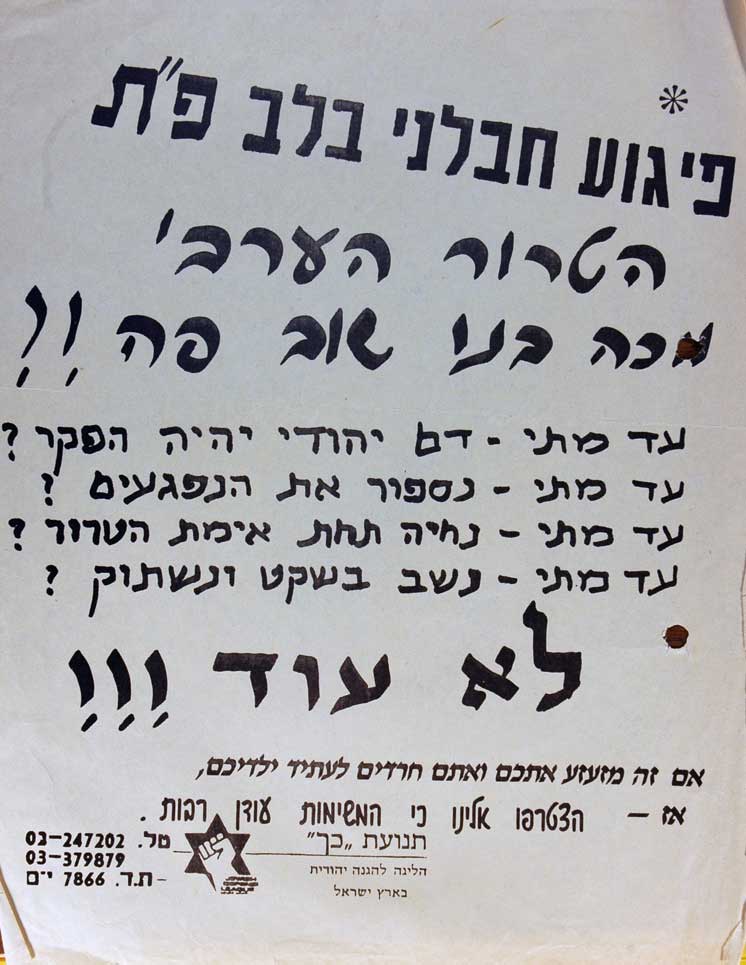 *
פיגוע חבלני בלב פ"ת
הטרור הערבי
מכה בנו שוב פה !!
עד מתי - דם יהודי יהיה הפקר ?
עד מתי - נספור את הנפגעים ?
עד מתי - נחיה תחת אימת הטרור ?
עד מתי - נשב בשקט ונשתוק ?
לא עוד !!!
אם זה מזעזע אתכם ואתם חרדים לעתיד ילדיכם,
אז - הצטרפו אלינו כי המשימות עודן רבות.
תנועת „כך"
הליגה להגנה יהודית
בארץ ישראל
טל. 02-247202
03-379879
ת.ד. 7866 י-ם
JEWISH
DEFENSE
LEAGUE